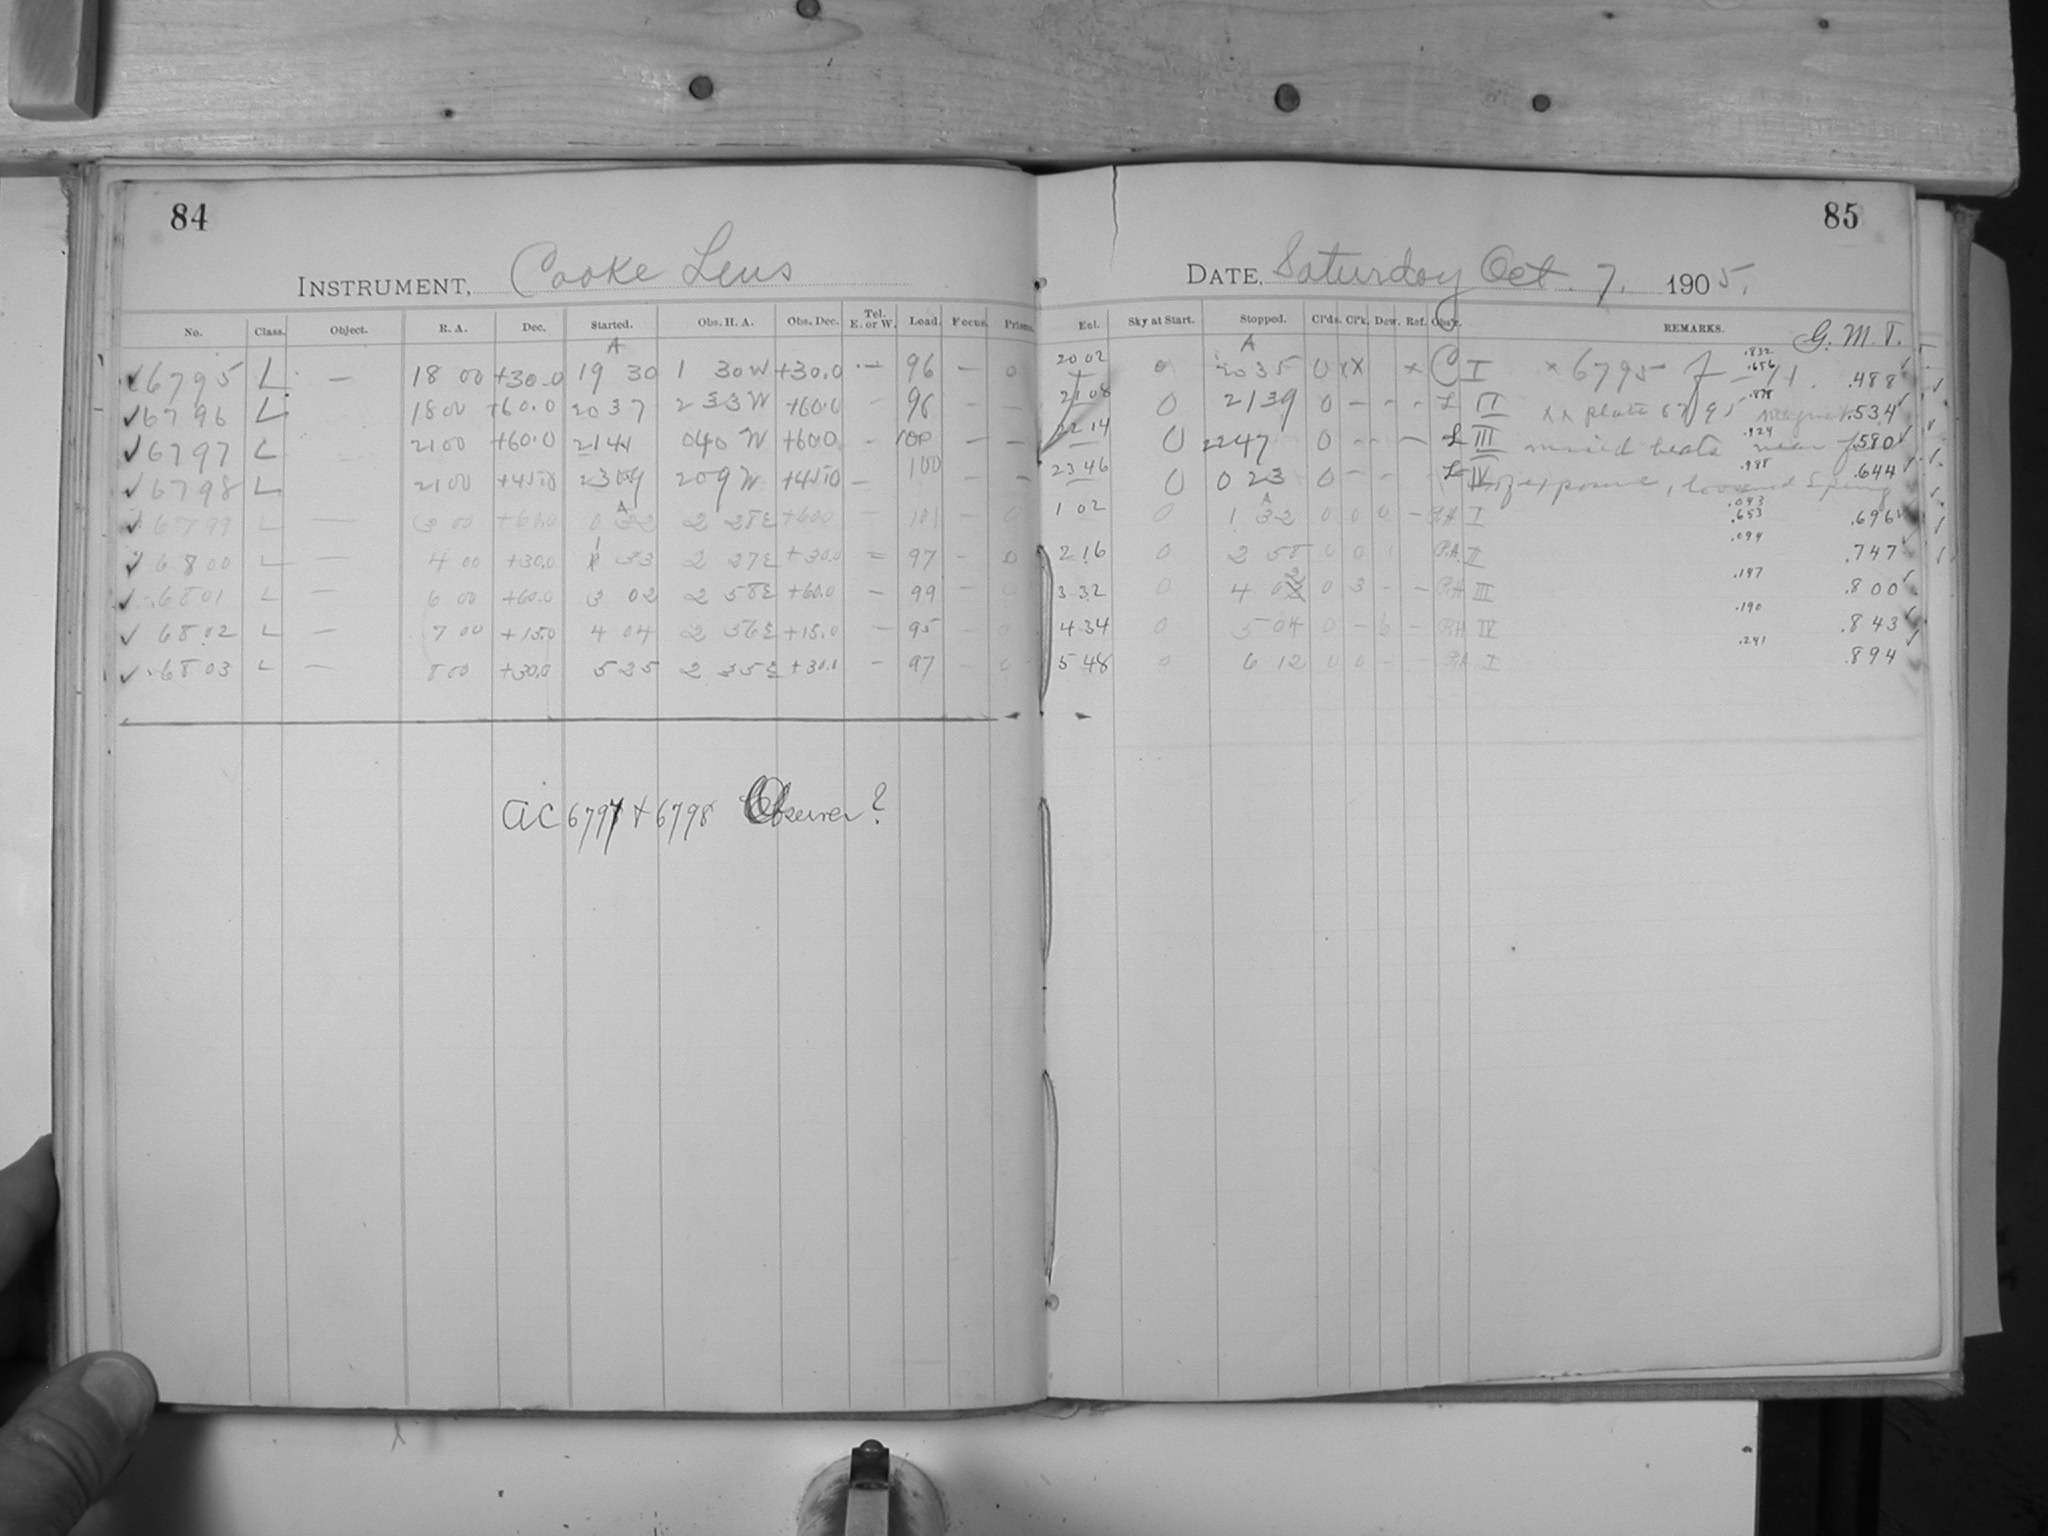 84
INSTRUMENT, Cooke Lens
No. Class. Object. R. A. Dec. Started. Obs. H. A. Obs. Dec. Tel. E. or W. Load. Focus. Prisms.
A
✓6795 L — 18 00 +30.0 19 30 1 30 W +30.0 — 96 — 0
✓6796 L 18 00 +60.0 20 37 2 33 W +60.0 - 96 - —
✓6797 L 21 00 +60.0 21 41 0 40 W +60.0 - 100 — —
✓6798 L 21 00 +45.0 23 09 2 09 W +45.0 — 100 - —
A
✓6799 L — 3 00 +60.0 0 32 2 28 E +60.0 — 101 — 0
✓6800 L — 4 00 +30.0 1 33 2 37 E +30.0 = 97 — 0
✓6801 L — 6 00 +60.0 3 02 2 58 E +60.0 — 99 — 0
✓6802 L — 7 00 +15.0 4 04 2 56 E +15.0 — 95 - 0
✓6803 L — 8 00 +30.0 5 25 2 35 E +30.0 — 97 — 0
AC 6797 + 6798 Observer?
85
DATE, Saturday Oct. 7. 1905.
Ent. Sky at Start. Stopped. Cl'ds. Cl'k. Dew. Ref. Obs'r. REMARKS. G. M. T.
A
20 02 0 20 35 0 xx x C I x 6795 .832 .656 .488
21 08 0 21 39 0 - - - L II xx plate 6795 magnet .878 .534
22 14 0 22 47 0 - - — L III missed beats near .924 .580
23 46 0 0 23 0 - - L IV of exposure, loosened spring .988 .644
A
1 02 0 1 32 0 0 0 - P.H. I .043 .653 .696
2 16 0 2 58 0 0 P.H. II .094 .747
3 32 0 4 02 0 3 - — P.H. III .147 .800
4 34 0 5 04 0 - 6 - P.H. IV .190 .843
5 48 0 6 12 0 0 - - P.H. I .241 .894